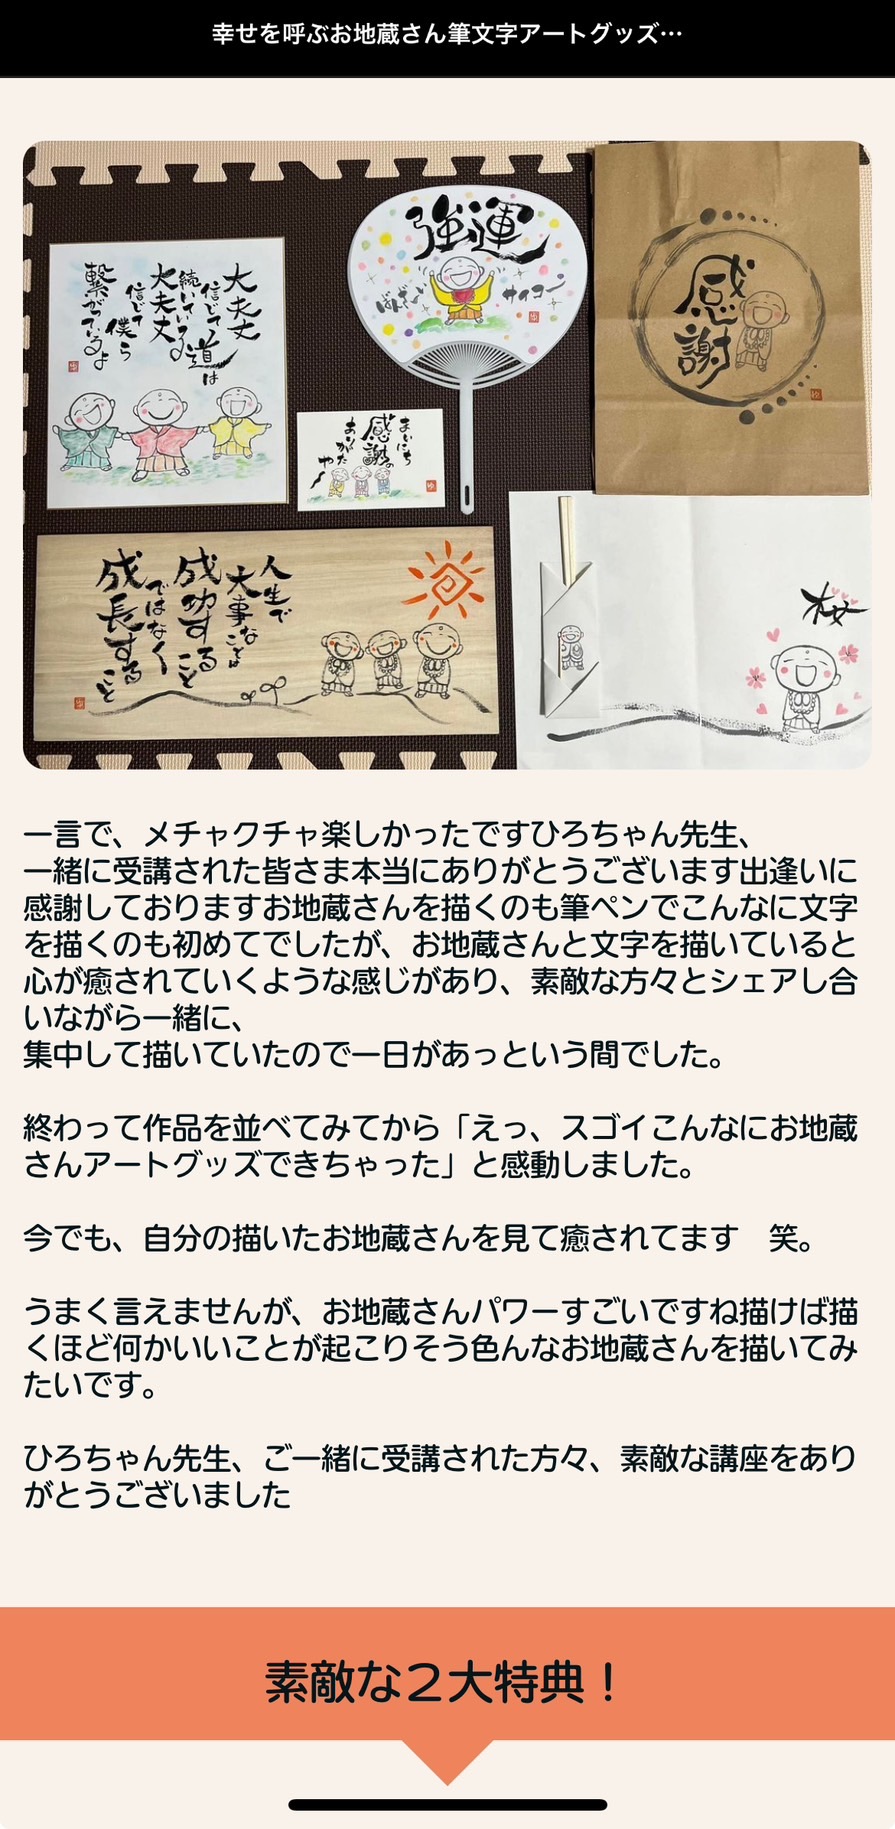 幸せを呼ぶお地蔵さん筆文字アートグッズ…
大丈夫
信じて
続いている道は
大丈夫
信じて
僕ら
繋がっているよ
強運
ばんざい
サイコー
感謝
まいにち
感謝の
ありがた
やー
人生で
大事な
ことは
成功する
こと
ではなく
成長する
こと
桜
一言で、メチャクチャ楽しかったですひろちゃん先生、
一緒に受講された皆さま本当にありがとうございます出逢いに
感謝しておりますお地蔵さんを描くのも筆ペンでこんなに文字
を描くのも初めてでしたが、お地蔵さんと文字を描いていると
心が癒されていくような感じがあり、素敵な方々とシェアし合
いながら一緒に、
集中して描いていたので一日があっという間でした。
終わって作品を並べてみてから「えっ、スゴイこんなにお地蔵
さんアートグッズできちゃった」と感動しました。
今でも、自分の描いたお地蔵さんを見て癒されてます　笑。
うまく言えませんが、お地蔵さんパワーすごいですね描けば描
くほど何かいいことが起こりそう色んなお地蔵さんを描いてみ
たいです。
ひろちゃん先生、ご一緒に受講された方々、素敵な講座をあり
がとうございました
素敵な２大特典！